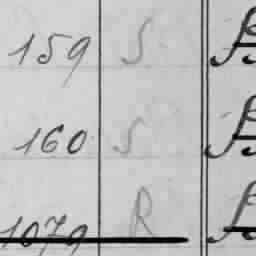 159 S
160 S
1079 R